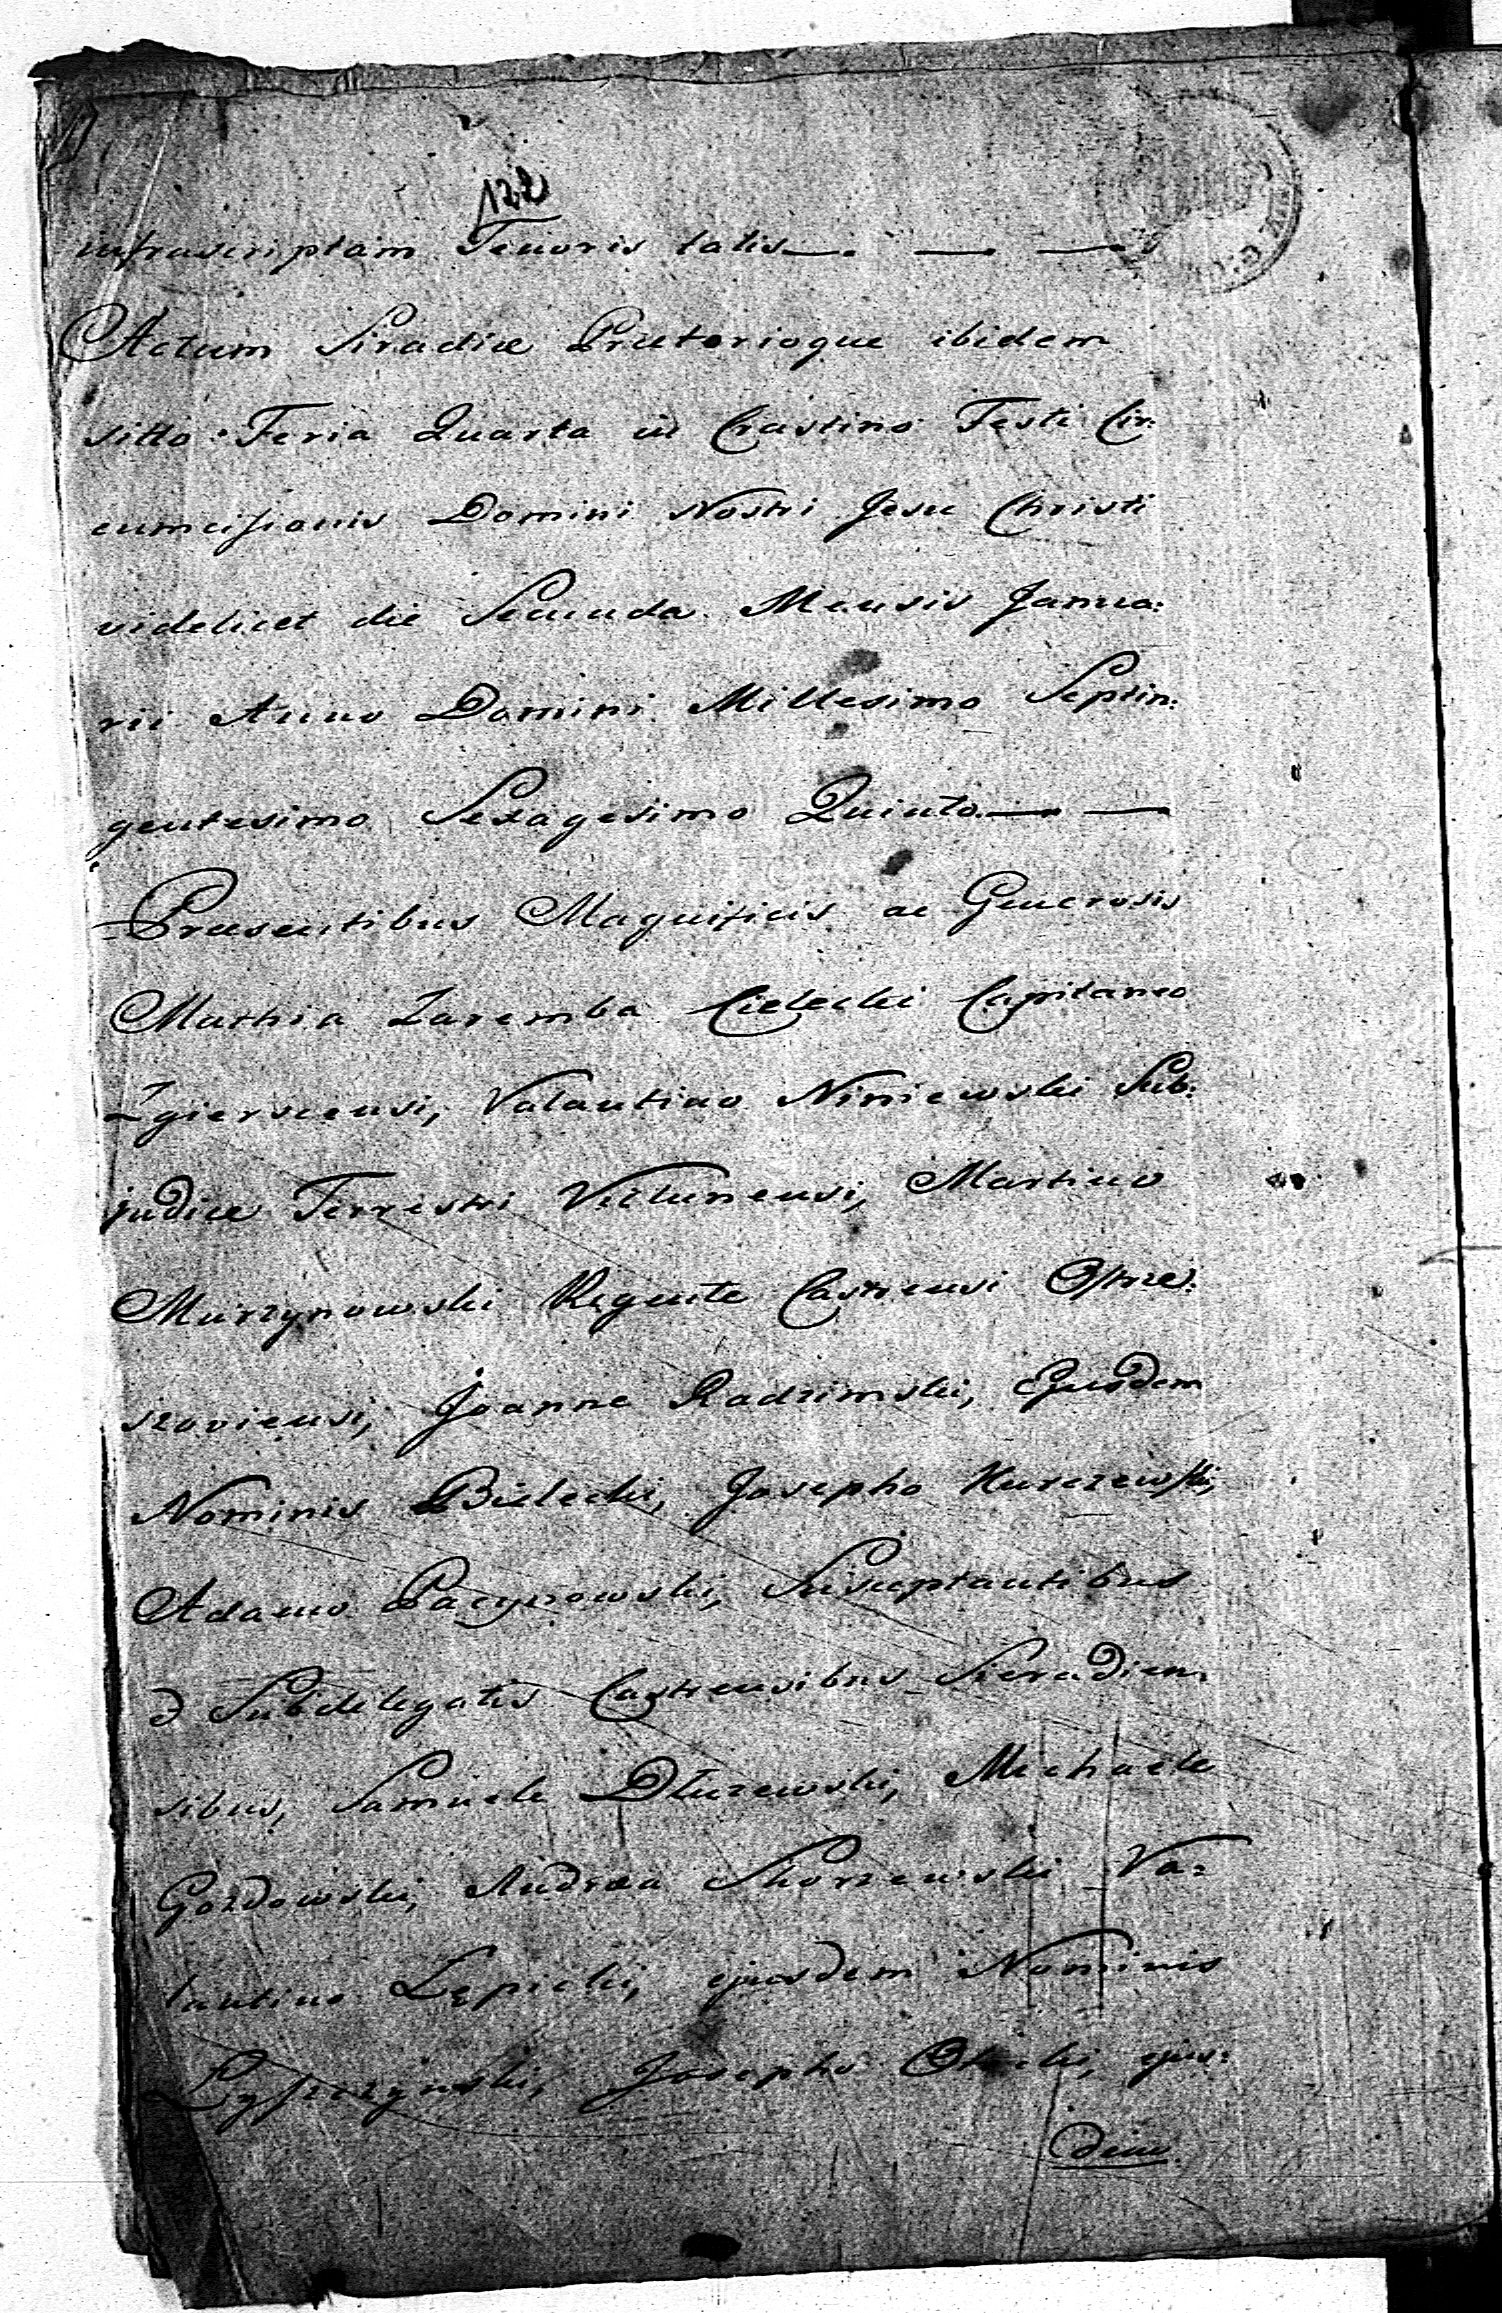 122
infrascriptam Tenoris talis
Actum Siradiæ Prætorioque ibidem
sitto Feria Quarta in Crastino Festi Cir:
cumcisionis Domini Nostri Jesu Christi
videlicet die Secunda Mensis Janua:
rii Anno Domini Millesimo Septin:
gentesimo Sexagesimo Quinto
Præsentibus Magnificis ac Generosis
Mathia Zaremba Cielecki Capitaneo
Zgierscensi, Valantino Niniewski Sub:
judice Terrestri Vielunensi, Martino
Murzynowski Regente Castrensi Ostrze:
szoviensi, Joanne Radzimski, Ejusdem
Nominis Bielecki, Josepho Kurczewski,
Adamo Pacynowski, Susceptantibus
Subdelegatis Castrensibus Sieradien:
sibus, Samuele Dłuzewski, Michaele
Gozdowski, Andræa Skorzewski Va:
lantino Łępicki, ejusdem Nominis
Łyszczynski, Josepho ejus:
dem